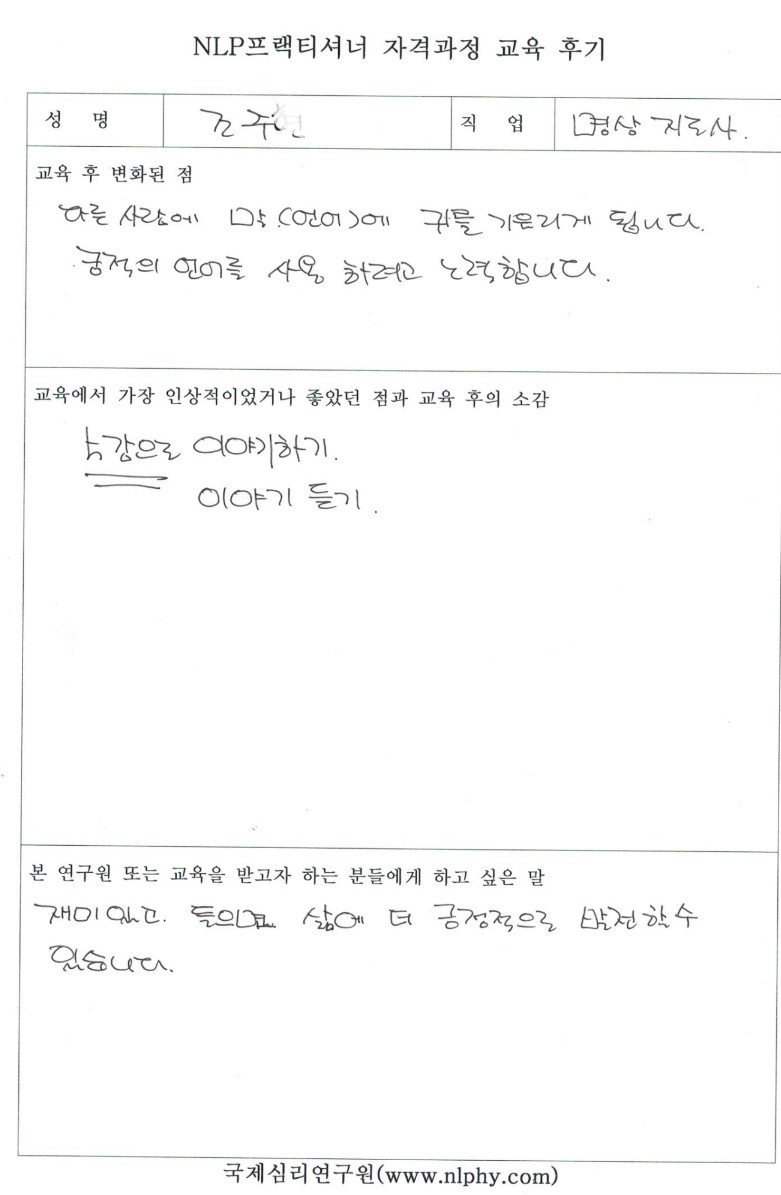 NLP프랙티셔너 자격과정 교육 후기
성 명 조주현 직 업 명상 지도사.
교육 후 변화된 점
다른 사람에 말(언어)에 귀를 기우리게 됩니다.
긍적의 언어를 사용 하려고 노력합니다.
교육에서 가장 인상적이었거나 좋았던 점과 교육 후의 소감
오감으로 이야기하기.
이야기 듣기.
본 연구원 또는 교육을 받고자 하는 분들에게 하고 싶은 말
재미 있고. 들의면 삶에 더 긍정적으로 발전할 수
있습니다.
국제심리연구원(www.nlphy.com)